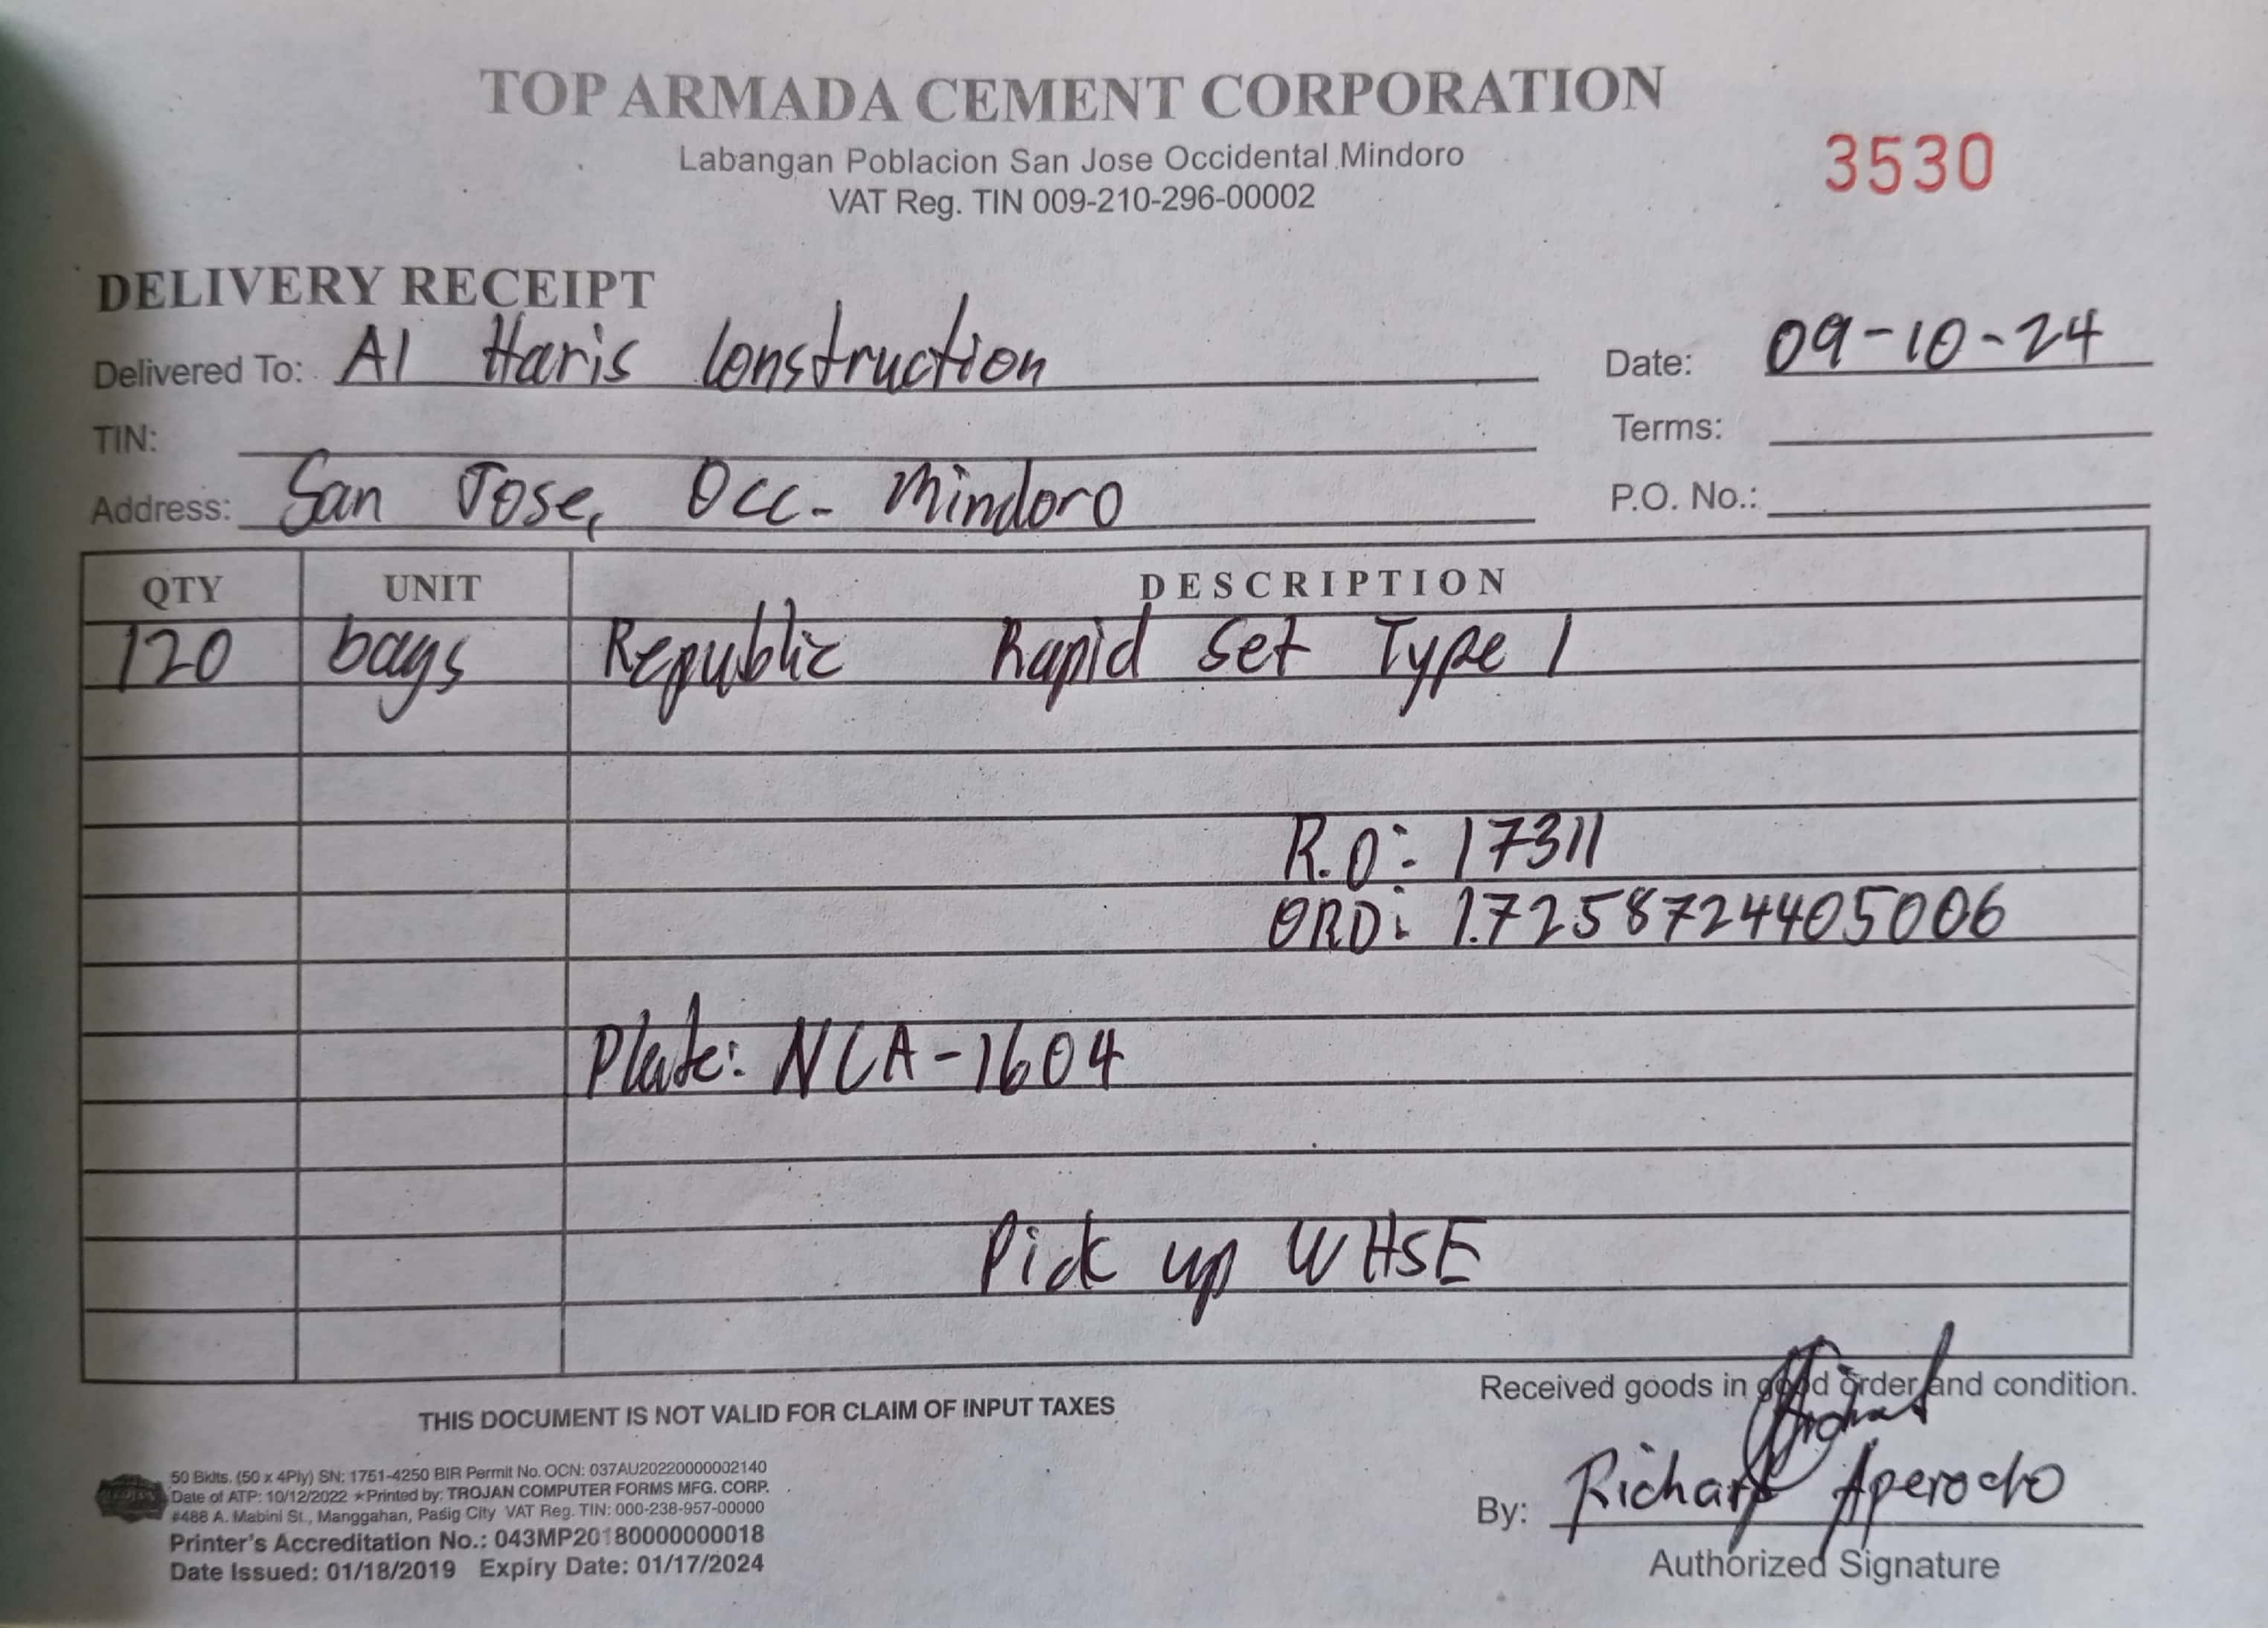 TOP ARMADA CEMENT CORPORATION
Labangan Poblacion San Jose Occidental Mindoro
3530
VAT Reg. TIN 009-210-296-00002
DELIVERY RECEIPT
Delivered To: Al Haris Construction Date: 09-10-24
TIN: Terms:
Address: San Jose, Occ. Mindoro P.O. No.:
QTY UNIT DESCRIPTION
120 bags Republic Rapid Set Type 1
R.O: 17311
ORD: 1.725872440 5006
Plate: NCA-1604
Pick up WHSE
Received goods in good order and condition.
THIS DOCUMENT IS NOT VALID FOR CLAIM OF INPUT TAXES
50 Bklts. (50 x 4Ply) SN: 1751-4250 BIR Permit No. OCN: 037AU20220000002140
Date of ATP: 10/12/2022 ★Printed by: TROJAN COMPUTER FORMS MFG. CORP.
#488 A. Mabini St., Manggahan, Pasig City VAT Reg. TIN: 000-238-957-00000
Printer's Accreditation No.: 043MP20180000000018
Date Issued: 01/18/2019 Expiry Date: 01/17/2024
By: Richard Aperocho
Authorized Signature